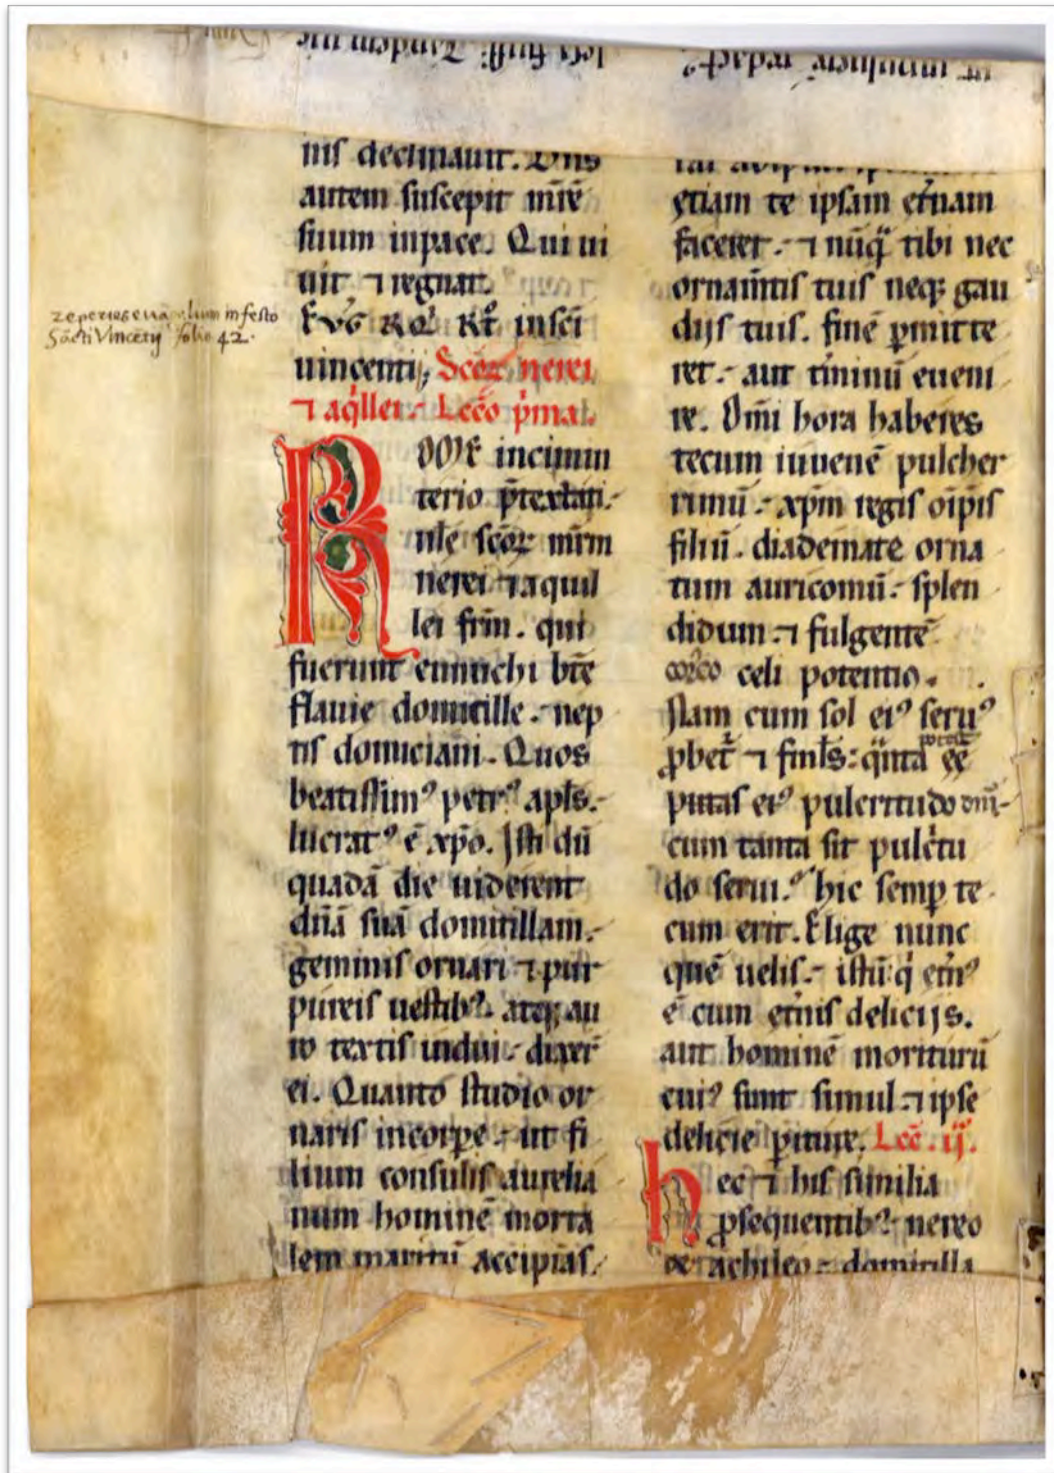 nis declinauit. Dn̄s
autem suscepit mr̄ē
suum inpace. Qui ui
uit ⁊ regnat.
uincentij, Scōꝝ nerei
⁊ aq̇llei. Lcc̄o p̄ma.
ROME incimin
terio p̄textati.
nerei ⁊ aquil
lei fr̄m. qui
fuerunt eunuchi bt̄e
flauie domitille. nep
tis domiciani. Quos
beatissimꝰ petrꝰ apl̄s.
lucratꝰ ē xp̄o. Isti dū
quadā die uiderent
dn̄ā suā domitillam.
geminis ornari ⁊ pur
pureis uestibꝫ. atqꝫ au
ro textis indui. dixer̄
ei. Quanto studio or
naris incorꝑe. ut fi
lium consulis aurelia
num hominē morta
lem maritū accipias.
etiam te ipsam et̄nam
faceret. ⁊ nūq̄ tibi nec
ornam̄tis tuis neqꝫ gau
dijs tuis. finē ꝑmitte
ret. aut t̄minū eueni
re. Om̄i hora haberes
tecum iuuenē pulcher
rimū. xp̄m regis oīp̄is
filiū. diademate orna
tum auricomū. splen
didum. ⁊ fulgentē
celi potentio.
Nam cum sol eiꝰ seruꝰ
putas eiꝰ pulcritudo
cum tanta sit pulc̄tu
do serui.ꝰ hic semꝑ te
cum erit. Elige nunc
quē uelis. istū q̇ et̄nꝰ
ē cum et̄nis delicijs.
aut hominē moriturū
cuiꝰ sunt simul ⁊ ipse
delicie ꝑiture. Lcc̄. ij.
hec ⁊ his similia
ꝓsequentibꝫ. nereo
et achileo. domitilla
Sancti Vincētij folio 42.